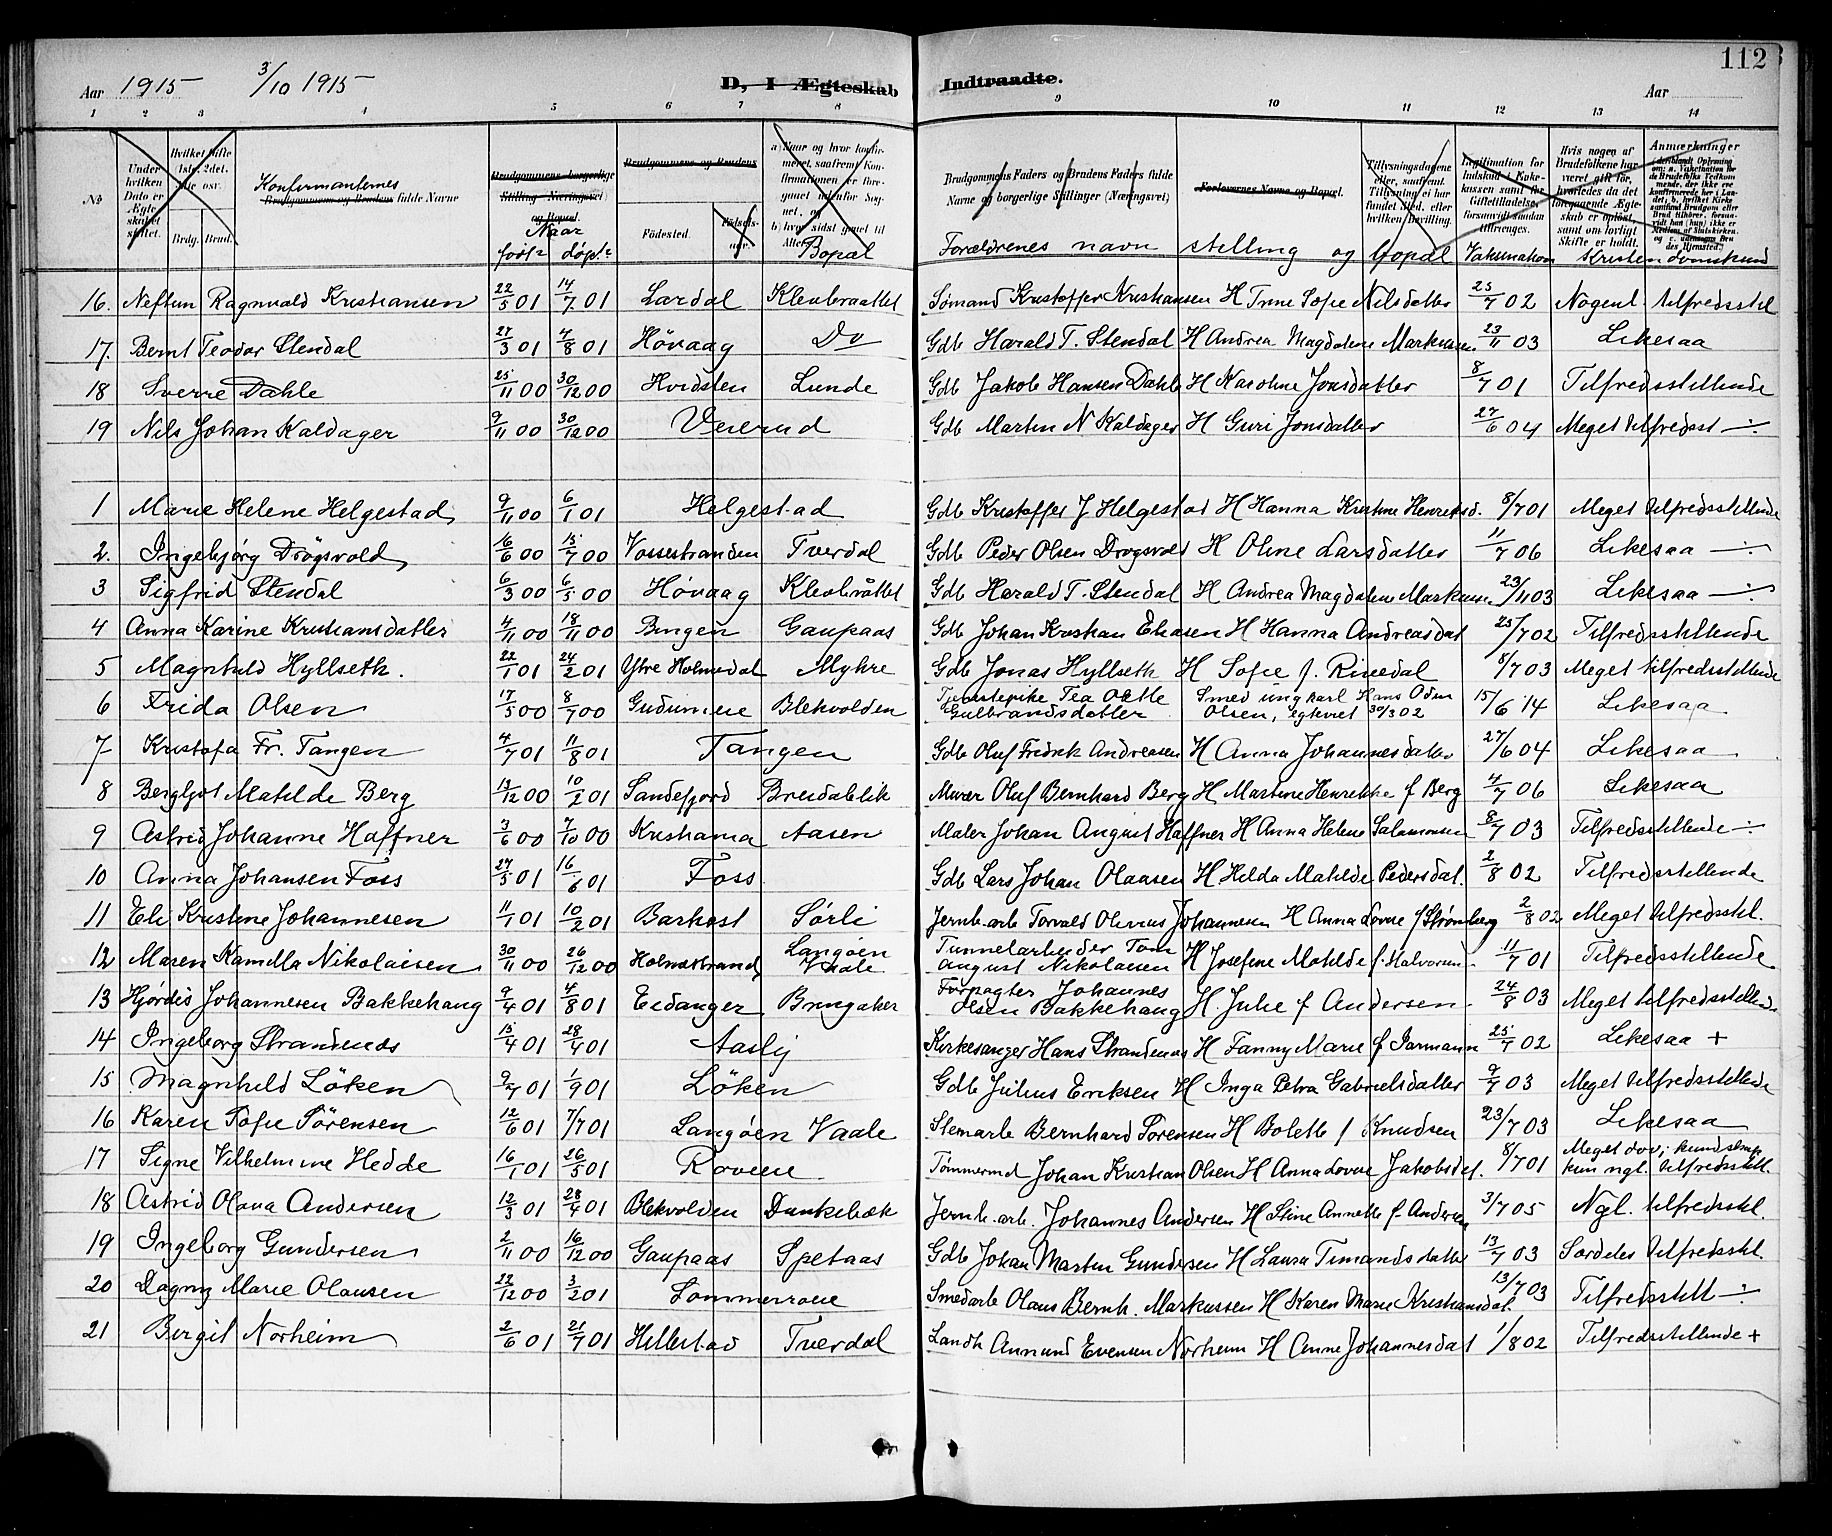 112
Aar 1915 3/10 1915 D, I Ægteskab Indtraadte. Aar
1 2 3 4 5 6 7 8 9 10 11 12 13 14
№ Under hvilken Dato er Ægteskabet stiftet. Hvilket Gifte 1ste, 2det. osv. Brdg. Brud. Konfirmanternes Brudgommens og Brudens fulde Navne Brudgommens borgerlige Stilling (Næringsvei) og Bopæl. Naar født døpt Brudgommens og Brudens Födested. Födselsaar. Bopæl
Brudgommens Faders og Brudens Faders fulde Navne og borgerlige Stillinger (Næringsvei) Forlovernes Navne og Bopæl. Forældrenes navn stilling og bopæl Vaksination Kristendomskund
16. Neftun Ragnvald Kristiansen 22/5 01 14/7 01 Lardal Klevbraattet Sømand Kristoffer Kristiansen H Trine Sofie Nilsdatter 25/7 02 Nogenl. tilfredsstil
17. Bernt Teodor Stendal 27/3 01 4/8 01 Høvaag Do Gdb Harald T. Stendal H Andrea Magdalene Markussen 23/11 03 Likesaa
18 Sverre Dahle 25/11 00 30/12 00 Hvidsten Lunde Gdb Jakob Hansen Dahle H Karoline Jonsdatter 8/7 01 Tilfredsstillende
19 Nils Johan Kaldager 9/11 00 30/12 00 Veierud Gdb Martin N Kaldager H Guri Jonsdatter 27/6 04 Meget tilfredsst
1 Marie Helene Helgestad 9/11 00 6/1 01 Helgestad Gdb Kristoffer J Helgestad H Hanna Kristine Henriksd. 8/7 01 Meget tilfredsstillende
2. Ingebjørg Drøgsvold 16/6 00 15/7 00 Vossestranden Tverdal Gdb Peder Olsen Drogsvold H Oline Larsdatter 11/7 06 Likesaa
3 Sigfrid Stendal 6/3 00 6/5 00 Høvaag Klevbråttet Gdb Harald T. Stendal H Andrea Magdalene Markussen 23/11 03 Likesaa
4 Anna Karine Kristiansdatter 4/11 00 18/11 00 Bingen Gaupaas Gdb Johan Kristian Eliasen H Hanna Andreasdat 25/7 02 Tilfredsstillende
5 Magnhild Hyllseth. 22/1 01 24/2 01 Ytre Holmedal Myhre Gdb Jonas Hyllseth H Sofie f. Rivedal 8/7 03 Meget tilfredsstillende
6 Frida Olsen 17/5 00 8/7 00 Gudumeie Blekvolden Tjenestepike Tea Otilie Gulbrandsdatter Smed ungkarl Hans Odin Olsen, egtviet 30/3 02 15/6 14 Likesaa
7 Kristofa Fr. Tangen 4/7 01 11/8 01 Tangen Gdb Oluf Fredrik Andreasen H Anna Johannesdatter 27/6 04 Likesaa
8 Bergljot Matilde Berg 13/12 00 10/2 01 Sandefjord Breidablik Murer Oluf Bernhard Berg H Martine Henrikke f Berg 4/7 06 Likesaa
9 Astrid Johanne Haffner 3/6 00 7/10 00 Kristiania Aasen Maler Johan August Haffner H Anna Helene Salamonsen 8/7 03 Tilfredsstillende
10 Anna Johansen Foss 27/5 01 16/6 01 Foss Gdb Lars Johan Olausen H Hilda Matilde Pedersdat. 2/8 02 Tilfredsstillende
11 Eli Kristine Johannesen 11/1 01 10/2 01 Barkost Sørli Jernb.arb Torvald Olenius Johannesen H Anna Lovise f Strømberg 2/8 02 Meget tilfredsstil.
12 Maren Kamilla Nikolaisen 30/11 00 26/12 00 Holmestrand Langøen Vaale Tunnelarbeider Tom August Nikolaisen H Josefine Matilde f. Halvorsen 11/7 01 Tilfredsstillende
13 Hjørdis Johannesen Bakkehaug 9/4 01 4/8 01 Eidanger Bringaker Forpagter Johannes Olsen Bakkehaug H. Julie f Andersen 24/8 03 Meget tilfredsstillende
14 Ingeborg Strandenæs 15/4 01 28/4 01 Aasly Kirkesanger Hans Strandenæs H Fanny Marie f Jarmann 25/7 02 Likesaa +
15 Magnhild Löken 9/7 01 1/9 01 Löken Gdb Julius Eriksen H Inga Petra Gabrielsdatter 9/7 03 Meget tilfredsstillende
16 Karen Sofie Sörensen 12/6 01 7/7 01 Langøen Vaale Stenarb Bernhard Sørensen H Bolette f Knudsen 23/7 03 Likesaa
17 Signe Vilhelmine Hedde 16/1 01 26/5 01 Roveie Tømmermd Johan Kristian Olsen H Anna Lovise Jakobsdat. 8/7 01 Meget dov; kundskap kun ngl. tilfredsstill.
18 Astrid Olava Andersen 12/3 01 28/4 01 Blekvolden Dunkebæk Jernb.arb. Johannes Andersen H Stine Annette f. Andersen 3/7 05 Ngl. tilfredsstil.
19 Ingeborg Gundersen 2/11 00 16/12 00 Gaupaas Spetaas Gdb Johan Martin Gundersen H Laura Timandsdatter 13/7 03 Særdeles tilfredsstil.
20 Dagny Marie Olausen 22/12 00 3/2 01 Sommerroeie Smedarb Olaus Bernh. Markussen H Karen Marie Kristiansdat. 13/7 03 Tilfredsstill
21 Bergit Norheim 2/6 01 21/7 01 Hillestad Tverdal Landh Annund Evensen Norheim H Anne Johannesdat 1/8 02 Tilfredsstillende +